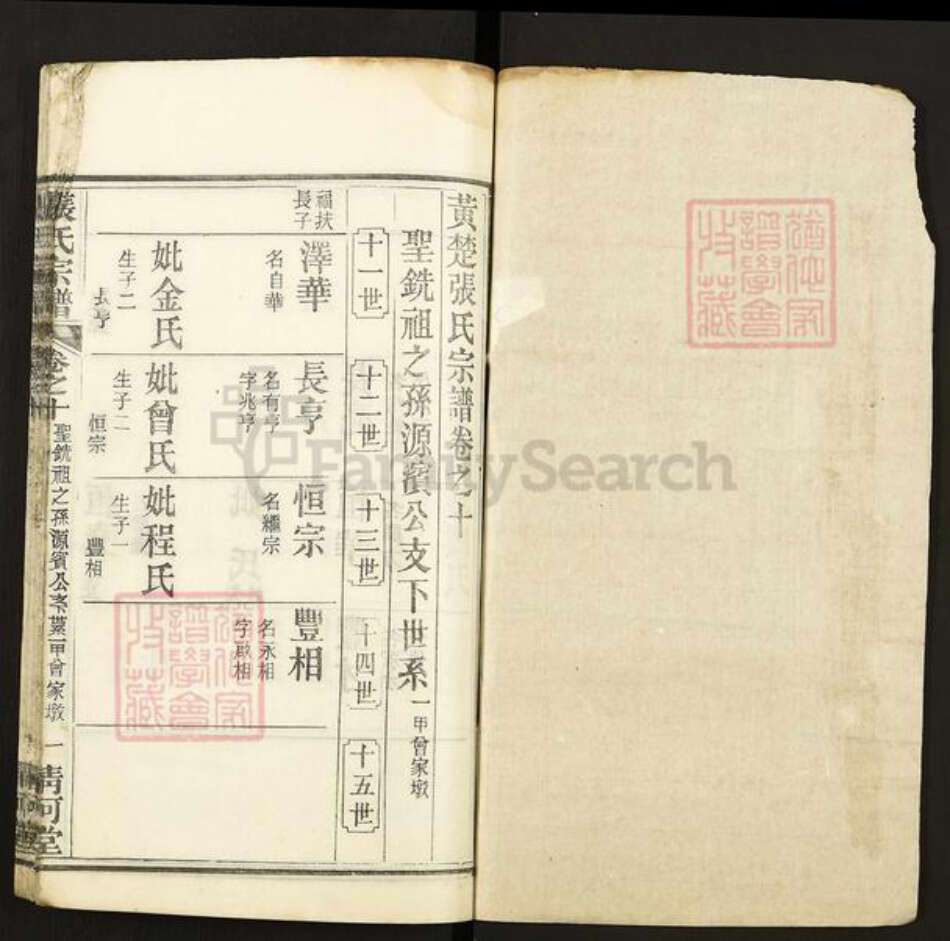 黃楚張氏宗譜卷之十
聖銑祖之孫源濱公支下世系一甲曾家墩
十一世
十二世
十三世
十四世
十五世
福扶長子
澤華
名自華
妣金氏
生子二
長亨
長亨
名有亨
字兆亨
妣曾氏
生子二
恒宗
恒宗
名繼宗
妣程氏
生子一
豐相
豐相
名永相
字啟相
張氏宗譜
卷之十
聖銑祖之孫源濱公
一甲曾家墩
一
清河堂
譜學會
收藏
FamilySearch
譜學會
收藏